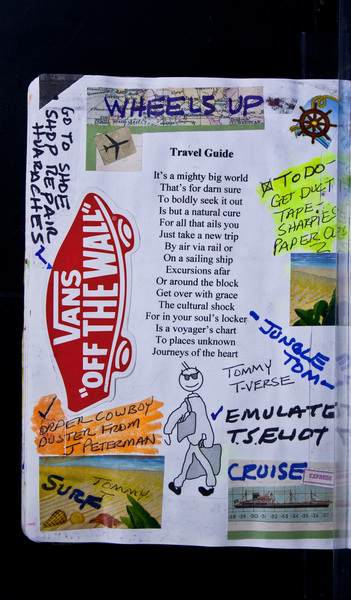 WHEELS UP
GO TO SHOE
SHOP REPAIR
HUARACHES
Travel Guide
It's a mighty big world
That's for darn sure
To boldly seek it out
Is but a natural cure
For all that ails you
Just take a new trip
By air via rail or
On a sailing ship
Excursions afar
Or around the block
Get over with grace
The cultural shock
For in your soul's locker
Is a voyager's chart
To places unknown
Journeys of the heart
TO DO-
GET DUCT
TAPE-
SHARPIES
PAPER
VANS
"OFF THE WALL"
-JUNGLE
TOM-
TOMMY
T-VERSE
EMULATE
T.S. ELIOT
ORDER COWBOY
DUSTER FROM
J PETERMAN
SURF
TOMMY
T
CRUISE
EXPRESS
-29 -30 -31 -32 -33 -34 -35 -36 -37